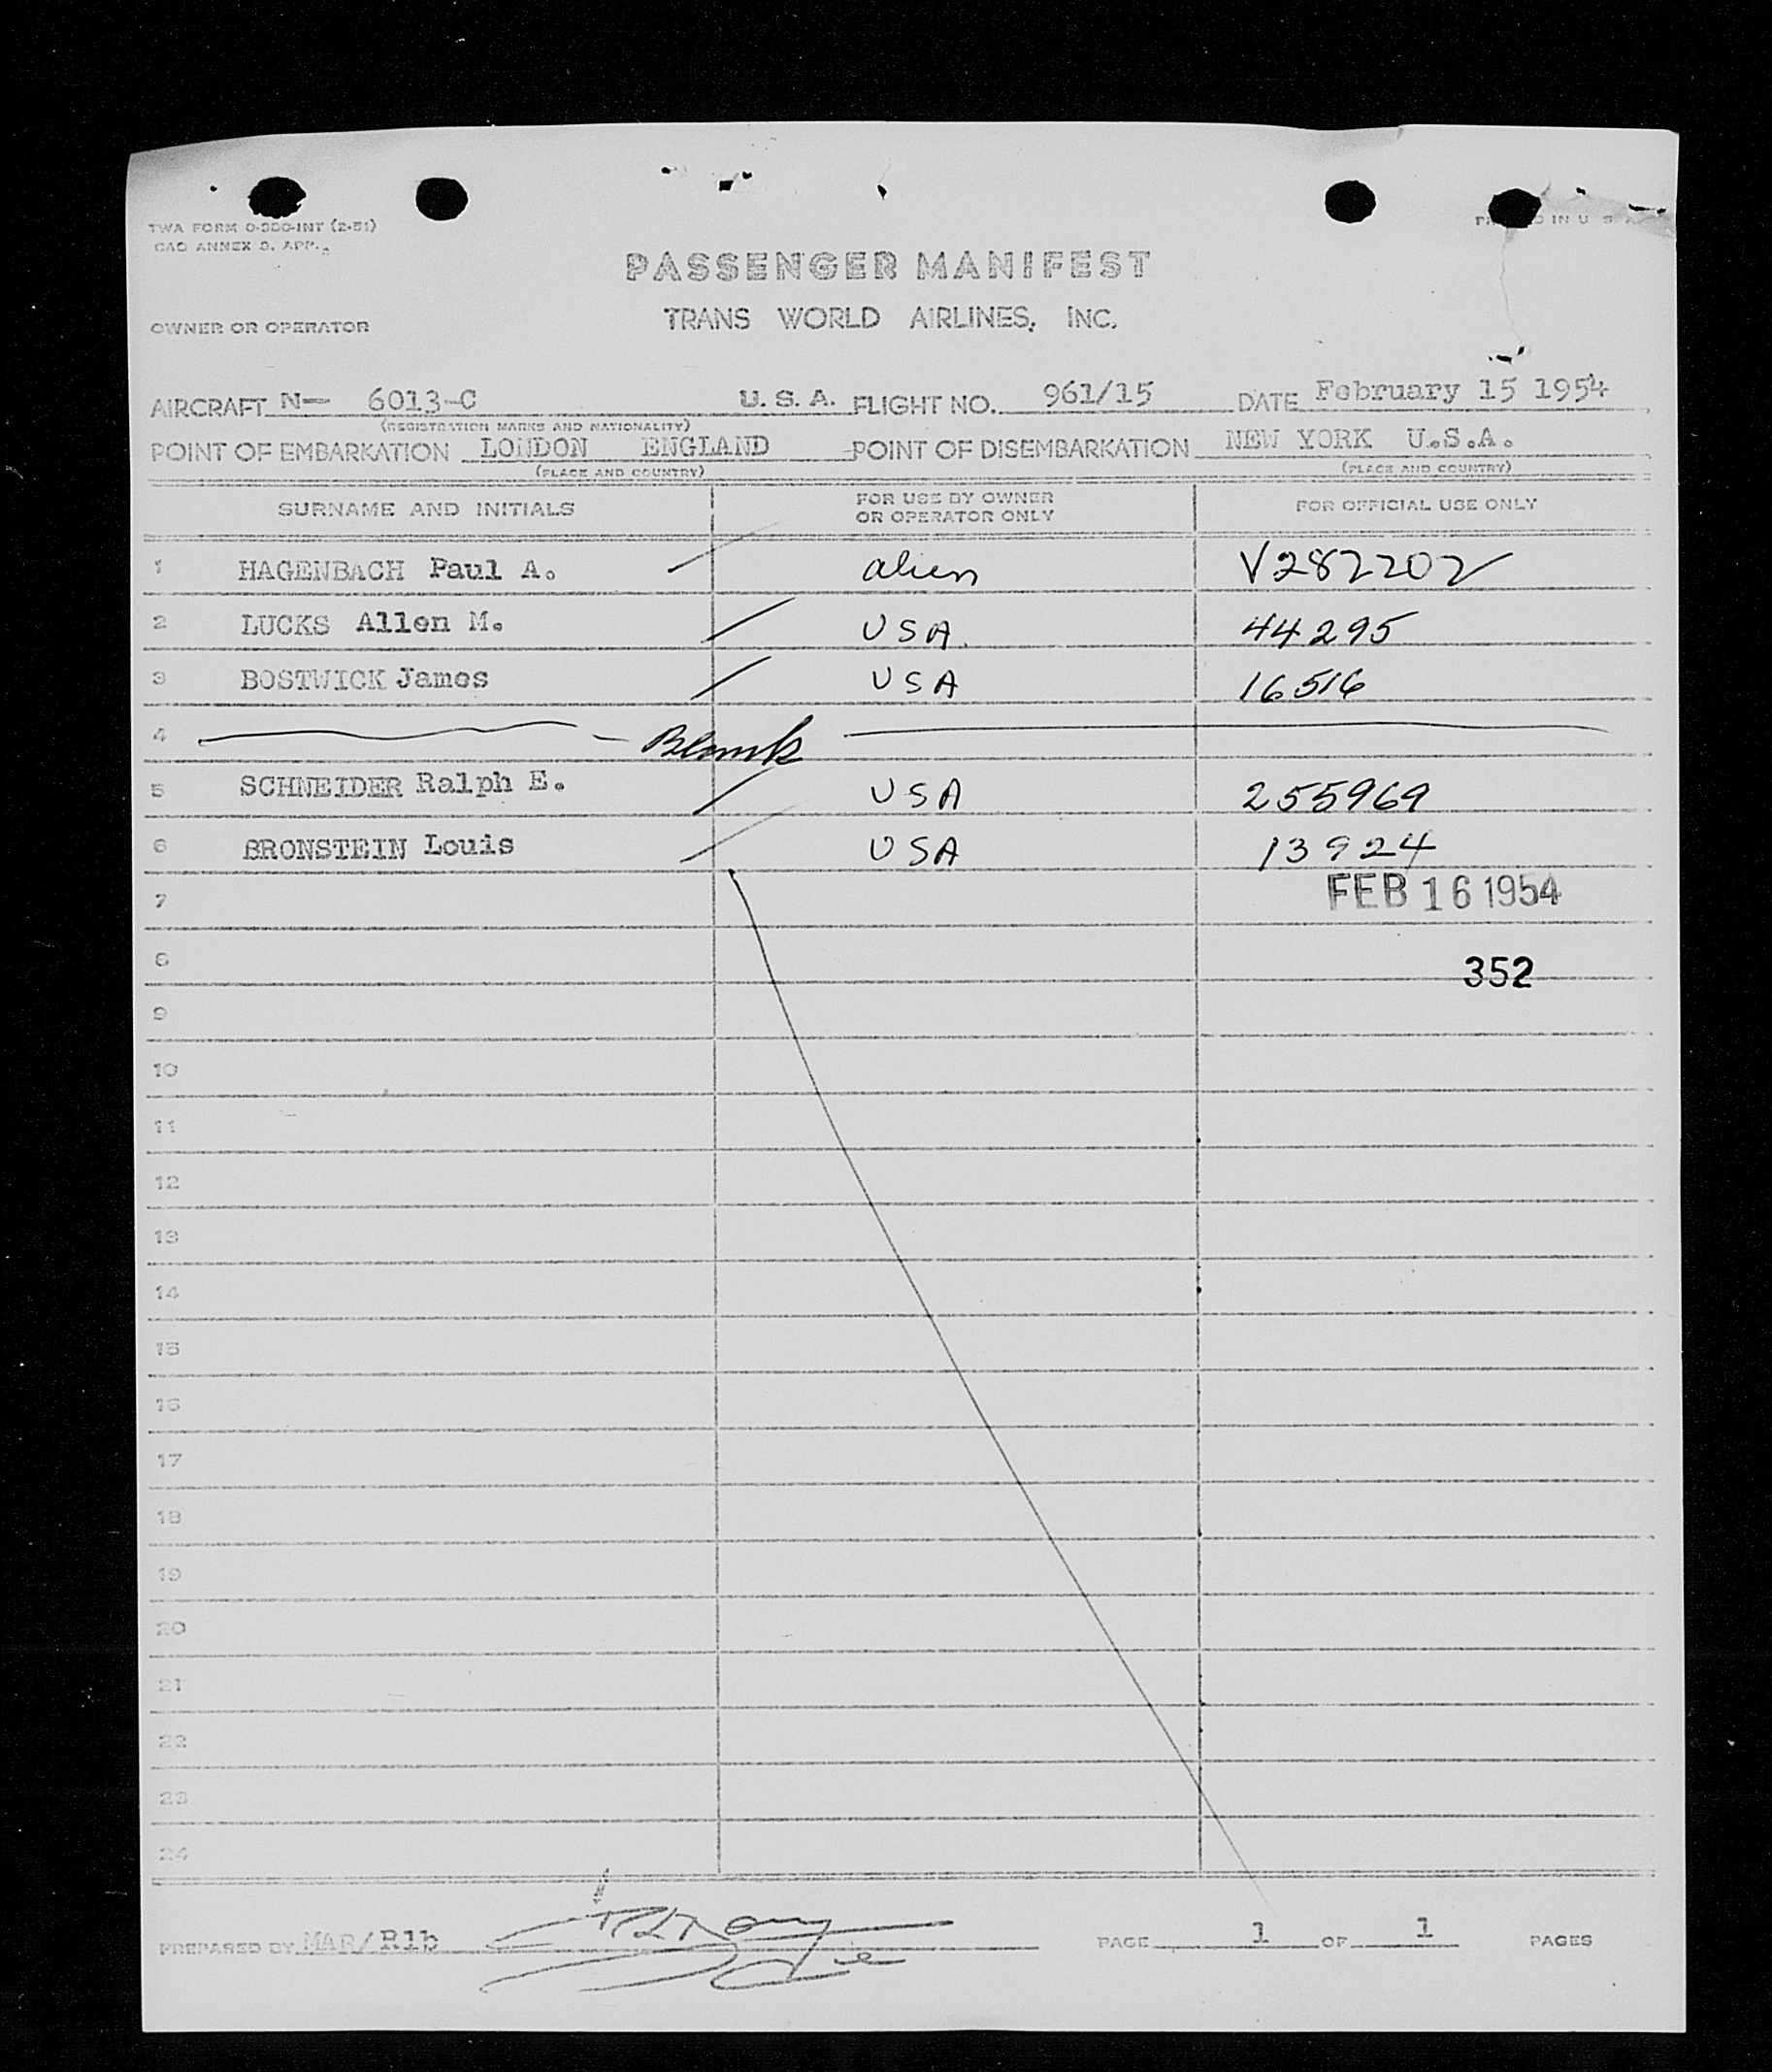 TWA FORM 0-300-INT (2-51)
CAO ANNEX 9, APP.
IN U. S. A.
PASSENGER MANIFEST
OWNER OR OPERATOR TRANS WORLD AIRLINES, INC.
AIRCRAFT N- 6013-C U. S. A. FLIGHT NO. 961/15 DATE February 15 1954
(REGISTRATION MARKS AND NATIONALITY)
POINT OF EMBARKATION LONDON ENGLAND POINT OF DISEMBARKATION NEW YORK U.S.A.
(PLACE AND COUNTRY) (PLACE AND COUNTRY)
SURNAME AND INITIALS FOR USE BY OWNER OR OPERATOR ONLY FOR OFFICIAL USE ONLY
1 HAGENBACH Paul A. alien V282202
2 LUCKS Allen M. USA. 44295
3 BOSTWICK James USA 16516
4 Blank
5 SCHNEIDER Ralph E. USA 255969
6 BRONSTEIN Louis USA 13924
7 FEB 16 1954
8 352
9
10
11
12
13
14
15
16
17
18
19
20
21
22
23
24
PREPARED BY MAR/Rlb PAGE 1 OF 1 PAGES